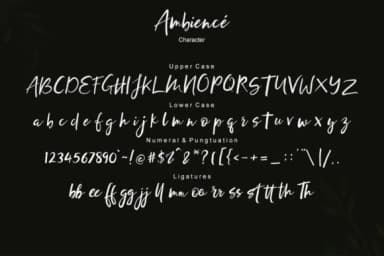 Ambiencé
Character
Upper Case
ABCDEFGHIJKLMNOPQRSTUVWXYZ
Lower Case
a b c d e f g h i j k l m n o p q r s t u v w x y z
Numeral & Pungtuation
1234567890
Ligatures
bb ee ff gg jj ll mm oo rr ss st tt th Th